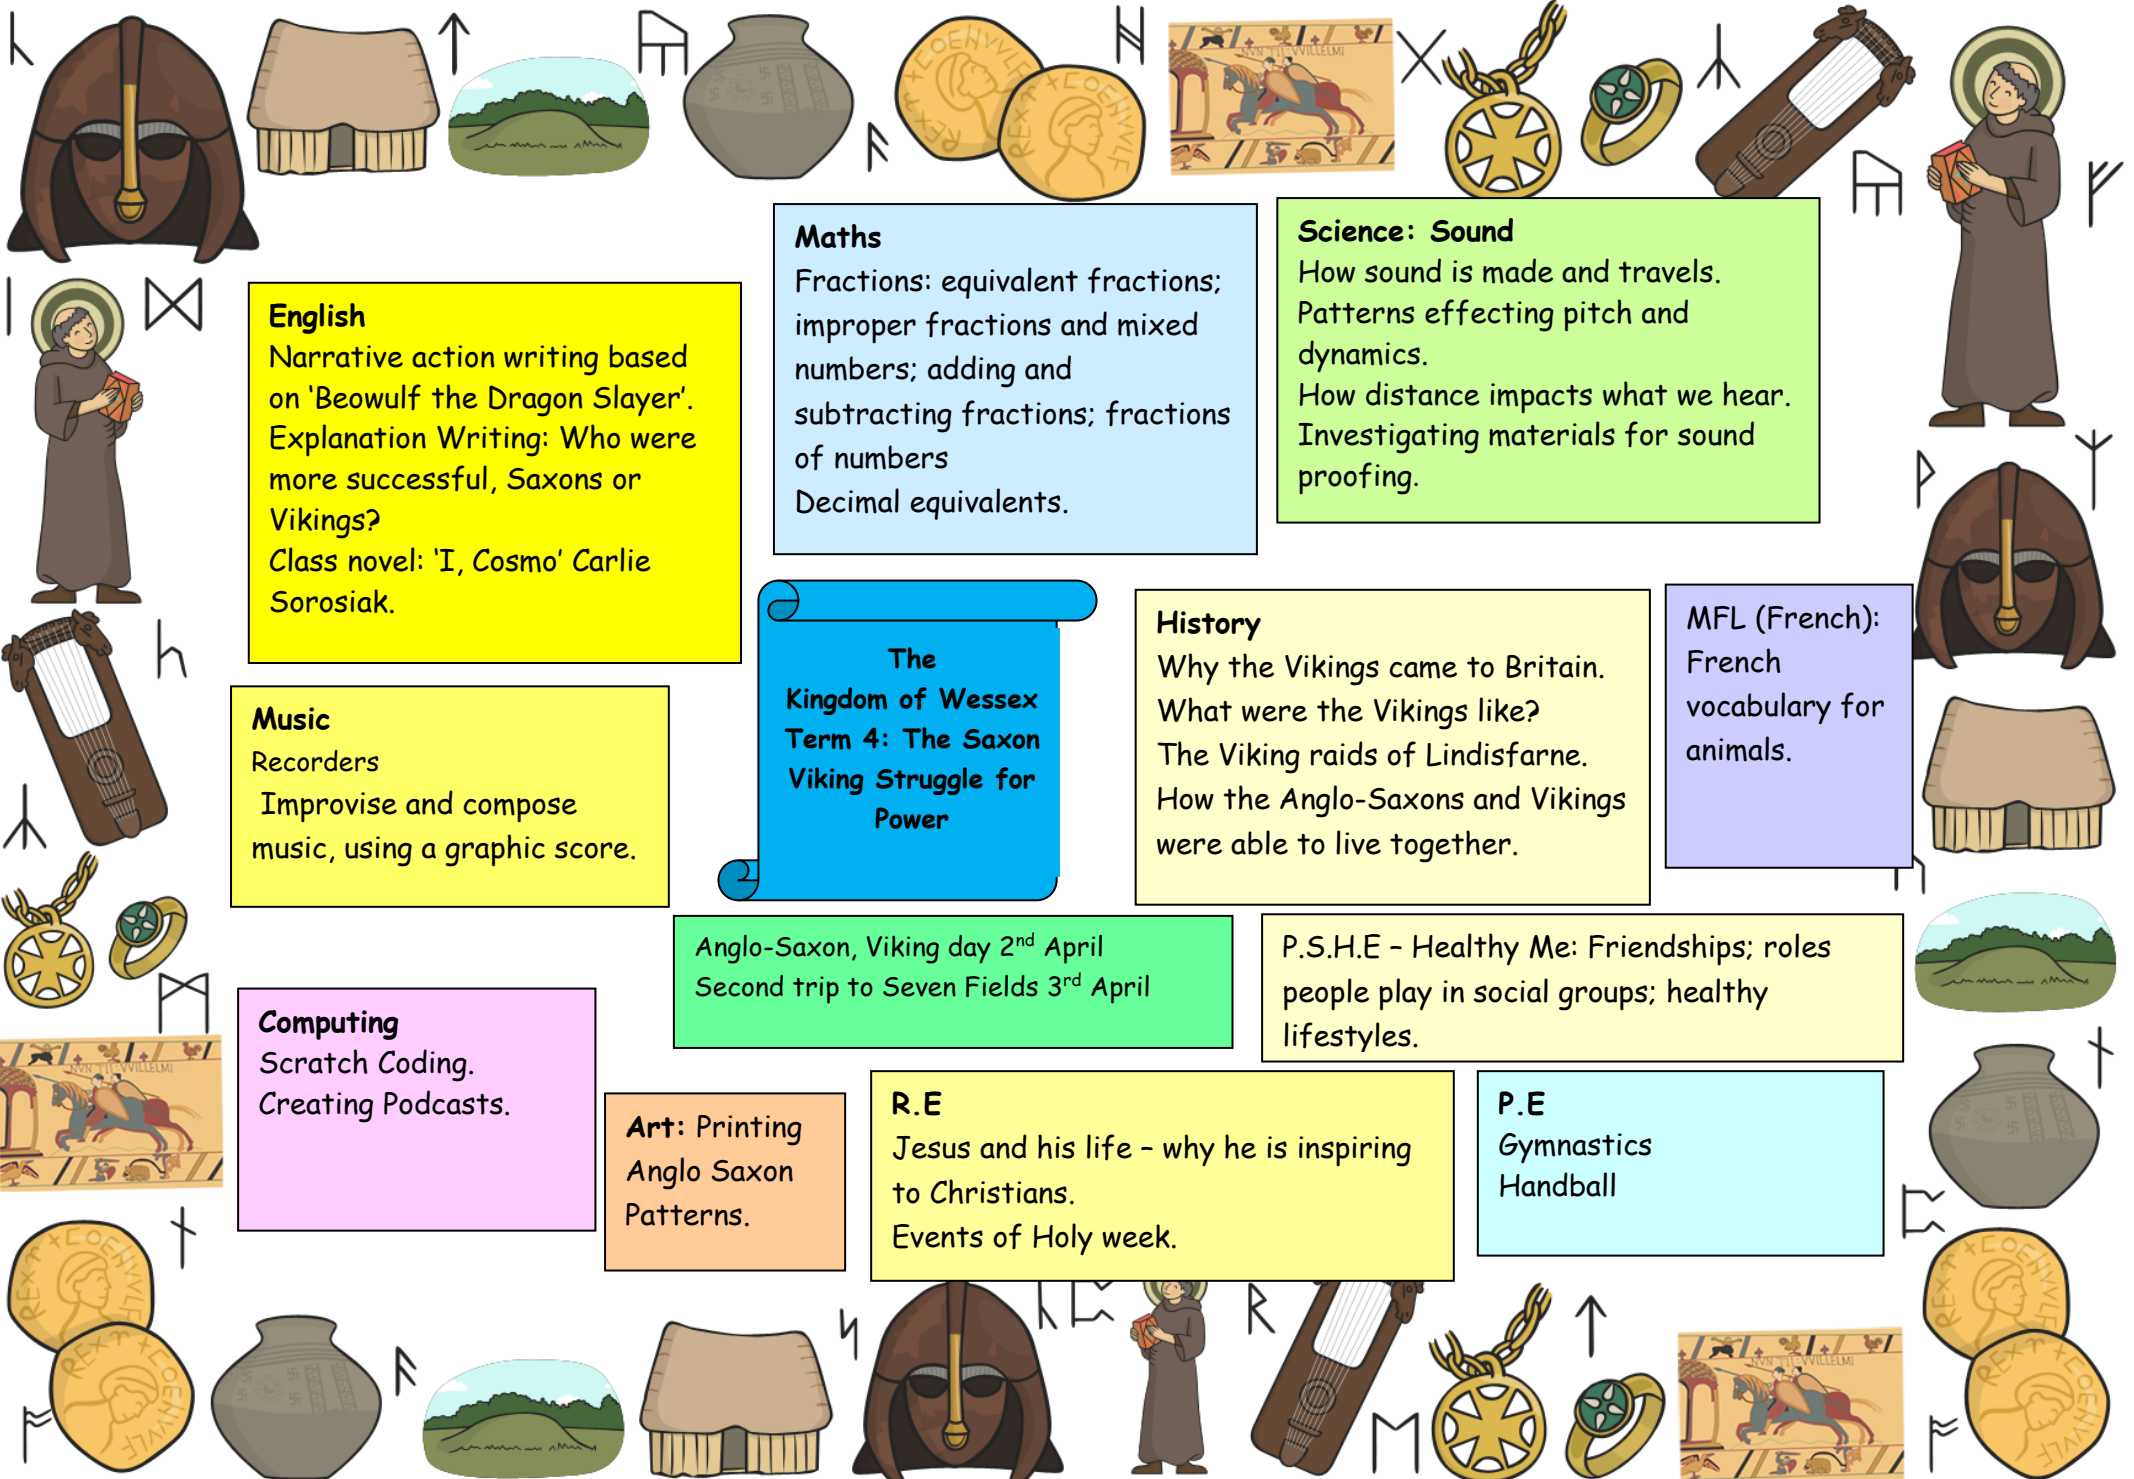 English
Narrative action writing based
on ‘Beowulf the Dragon Slayer’.
Explanation Writing: Who were
more successful, Saxons or
Vikings?
Class novel: ‘I, Cosmo’ Carlie
Sorosiak.
Maths
Fractions: equivalent fractions;
improper fractions and mixed
numbers; adding and
subtracting fractions; fractions
of numbers
Decimal equivalents.
Science: Sound
How sound is made and travels.
Patterns effecting pitch and
dynamics.
How distance impacts what we hear.
Investigating materials for sound
proofing.
Music
Recorders
Improvise and compose
music, using a graphic score.
The
Kingdom of Wessex
Term 4: The Saxon
Viking Struggle for
Power
History
Why the Vikings came to Britain.
What were the Vikings like?
The Viking raids of Lindisfarne.
How the Anglo-Saxons and Vikings
were able to live together.
MFL (French):
French
vocabulary for
animals.
Anglo-Saxon, Viking day 2nd April
Second trip to Seven Fields 3rd April
P.S.H.E – Healthy Me: Friendships; roles
people play in social groups; healthy
lifestyles.
Computing
Scratch Coding.
Creating Podcasts.
Art: Printing
Anglo Saxon
Patterns.
R.E
Jesus and his life – why he is inspiring
to Christians.
Events of Holy week.
P.E
Gymnastics
Handball